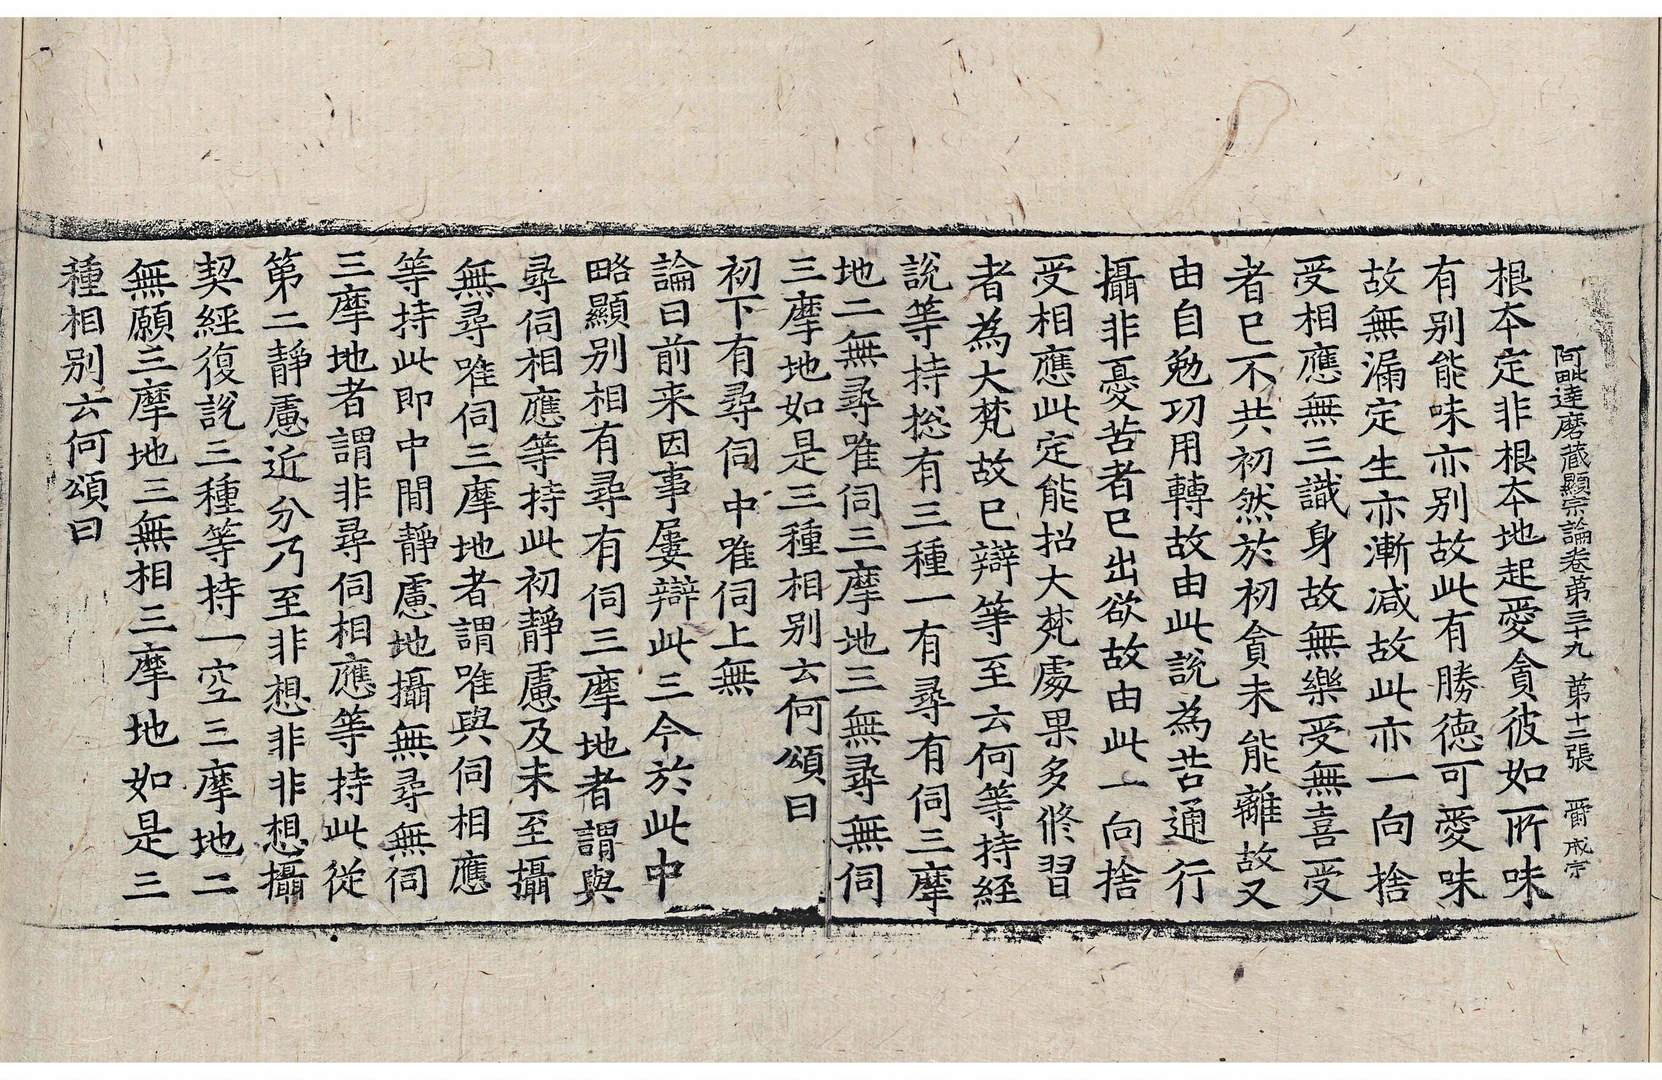 阿毗達磨藏顯宗論卷第三十九 第十二張 爵 成宗
根本定非根本地起愛貪彼如所味
有别能味亦别故此有勝德可愛味
故無漏定生亦漸减故此亦一向捨
受相應無三識身故無樂受無喜受
者已不共初然於初貪未能離故又
由自勉㓛用轉故由此說為苦通行
攝非憂苦者已出欲故由此一向捨
受相應此定能招大梵處果多修習
者為大梵故已辯等至云何等持經
說等持揔有三種一有尋有伺三摩
地二無尋唯伺三摩地三無尋無伺
三摩地如是三種相别云何頌曰
初下有尋伺中唯伺上無
論曰前来因事屢辯此三今於此中
略顯别相有尋有伺三摩地者謂與
尋伺相應等持此初靜慮及未至攝
無尋唯伺三摩地者謂唯與伺相應
等持此即中間靜慮地攝無尋無伺
三摩地者謂非尋伺相應等持此從
第二靜慮近分乃至非想非非想攝
契經復說三種等持一空三摩地二
無願三摩地三無相三摩地如是三
種相别云何頌曰